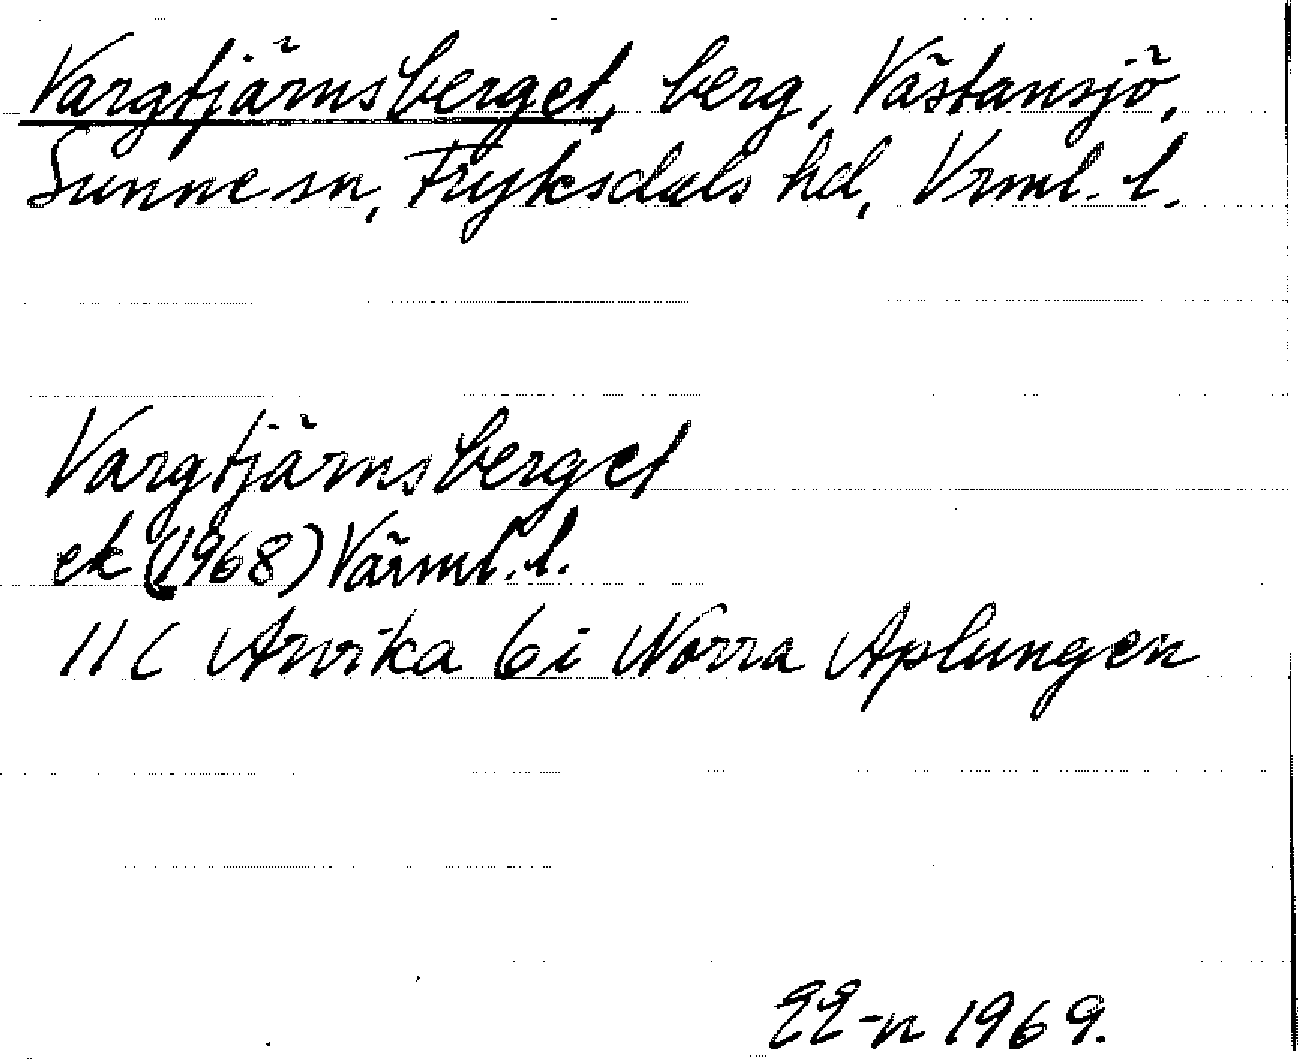 Vargtjärnsberget, berg, Västansjö,
Sunne sn, Fryksdals hd, Vrml. l.
Vargtjärnsberget
ek (1968) Värml. l.
11C Arvika 6i Norra Aplungen
EE-n 1969.